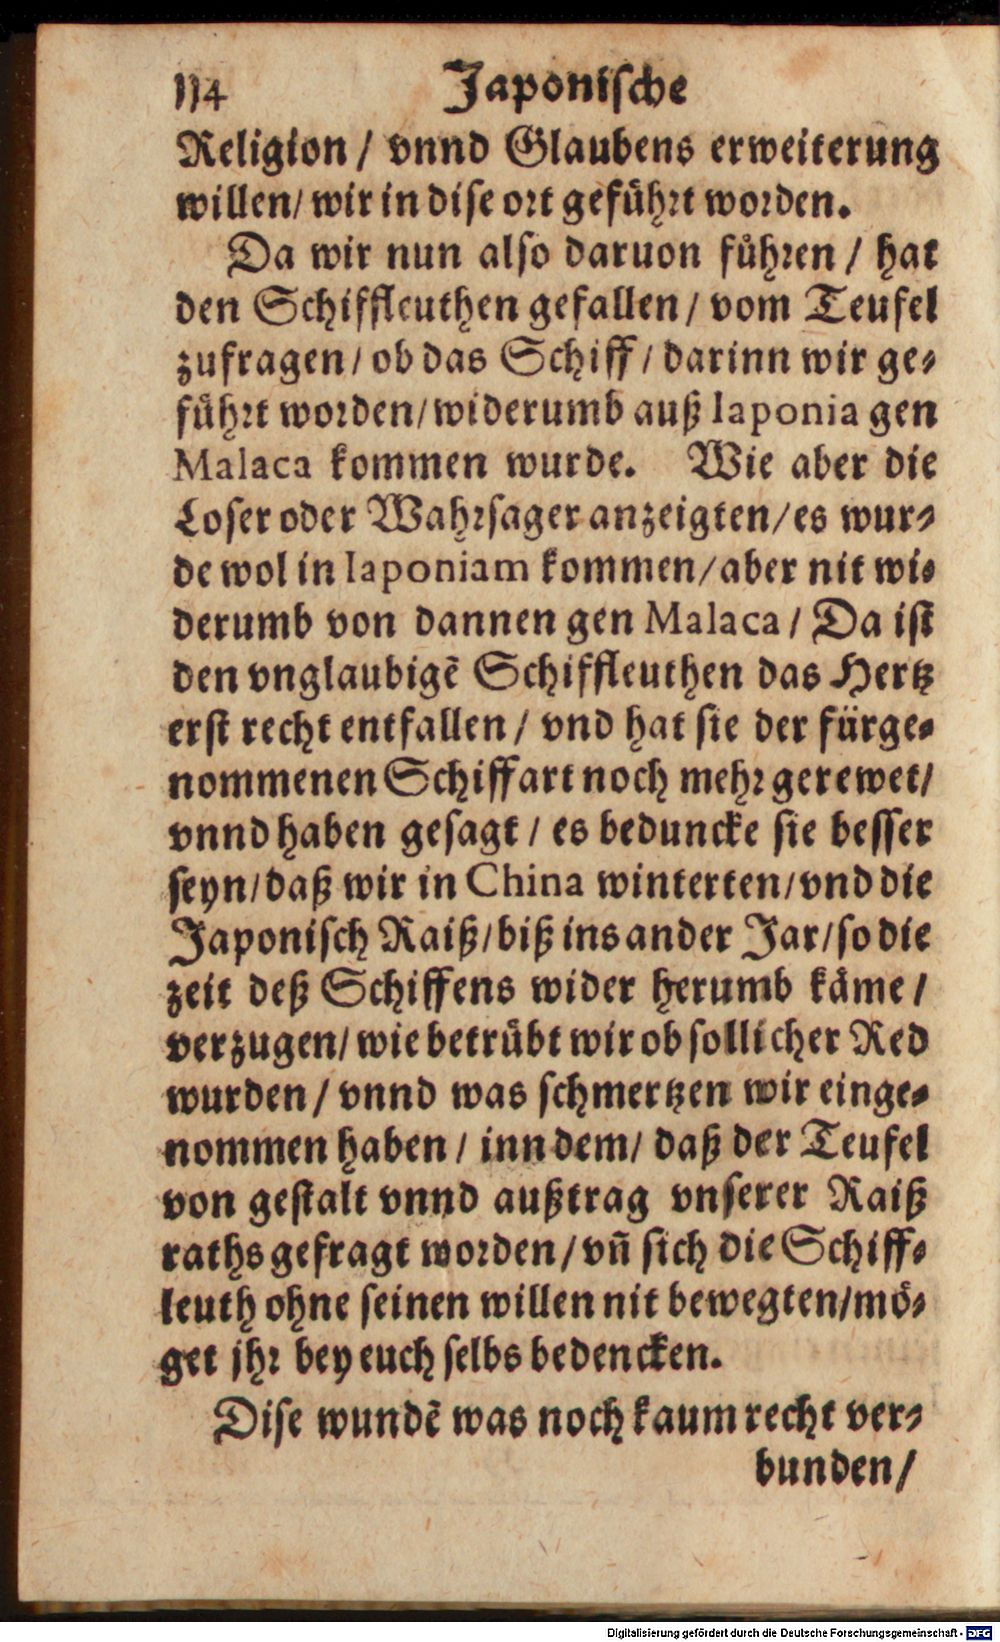 114 Japonische
Religion / vnnd Glaubens erweiterung
willen/ wir in dise ort gefůhrt worden.
Da wir nun also daruon fůhren / hat
den Schiffleuthen gefallen / vom Teufel
zufragen / ob das Schiff / darinn wir ge-
fůhrt worden / widerumb auß Iaponia gen
Malaca kommen wurde. Wie aber die
Loser oder Wahrsager anzeigten / es wur-
de wol in Iaponiam kommen / aber nit wi-
derumb von dannen gen Malaca / Da ist
den vnglaubigē Schiffleuthen das Hertz
erst recht entfallen / vnd hat sie der fürge-
nommenen Schiffart noch mehr gerewet /
vnnd haben gesagt / es beduncke sie besser
seyn / daß wir in China winterten / vnd die
Japonisch Raiß / biß ins ander Jar / so die
zeit deß Schiffens wider herumb kåme /
verzugen / wie betrůbt wir ob sollicher Red
wurden / vnnd was schmertzen wir einge-
nommen haben / inn dem / daß der Teufel
von gestalt vnnd außtrag vnserer Raiß
raths gefragt worden / vñ sich die Schiff-
leuth ohne seinen willen nit bewegten / mö-
get jhr bey euch selbs bedencken.
Dise wundē was noch kaum recht ver-
bunden /
Digitalisierung gefördert durch die Deutsche Forschungsgemeinschaft - DFG